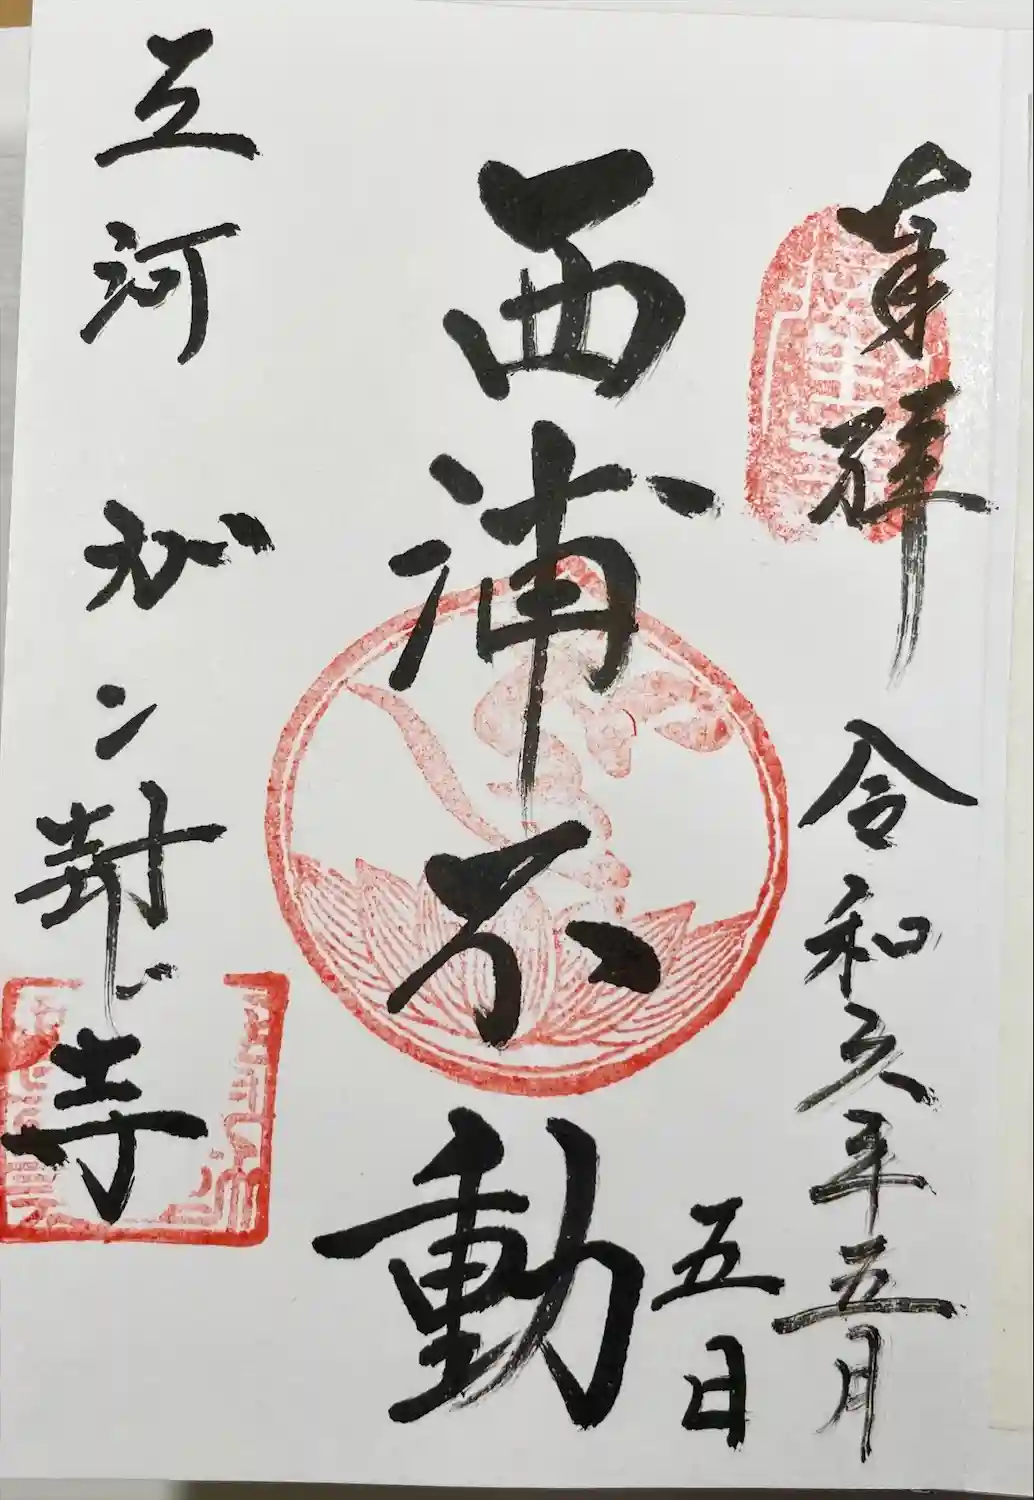 奉拝 令和六年五月
五日
西浦不動
三河 ガン封じ寺